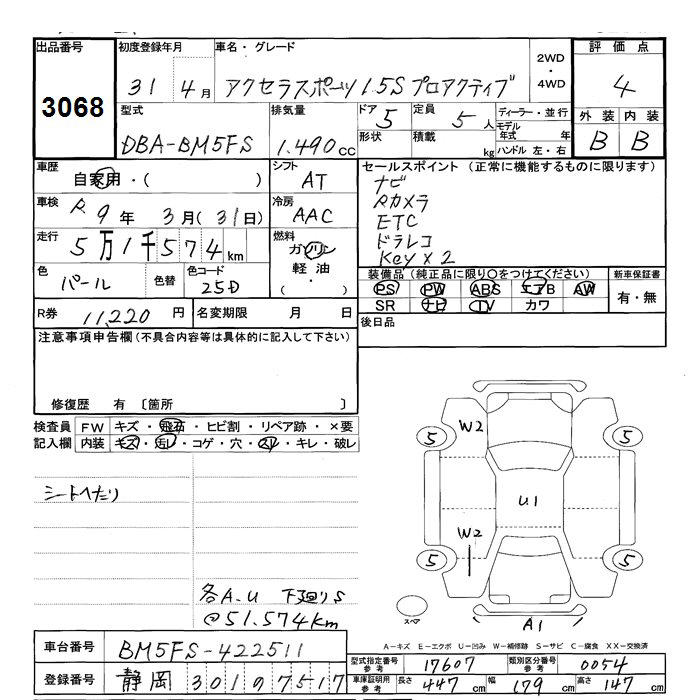 出品番号
3068
初度登録年月
31 4月
車名・グレード
アクセラスポーツ 1.5S プロアクティブ
2WD
・
4WD
評価点
4
型式
DBA-BM5FS
排気量
1.490cc
ドア 5
形状
定員 5人
積載 kg
ディーラー・並行
モデル年式 年
ハンドル 左・右
外装 内装
B B
車歴
自家用・( )
シフト
AT
車検
R9年 3月(31日)
冷房
AAC
走行
5万1千574km
燃料
ガソリン
軽油
( ・ )
色
パール
色替
色コード
25D
R券 11,220円
名変期限 月 日
セールスポイント (正常に機能するものに限ります)
ナビ
Rカメラ
ETC
ドラレコ
Key×2
装備品(純正品に限り○をつけてください)
PS PW ABS エアB AW
SR ナビ TV カワ
新車保証書
有・無
後日品
注意事項申告欄(不具合内容等は具体的に記入して下さい)
修復歴 有 〔箇所 〕
検査員 FW キズ・飛石・ヒビ割・リペア跡・×要
記入欄 内装 キズ・汚レ・コゲ・穴・スレ・キレ・破レ
シートへたり
各A.U 下廻りS
@51.574km
W2
5 5
U1
W2
5 5
スペア
A1
A-キズ E-エクボ U-凹み W-補修跡 S-サビ C-腐食 XX-交換済
車台番号 BM5FS-422511
登録番号 静岡 301 ロ 7517
型式指定番号参考 17607
類別区分番号参考 0054
車庫証明用参考 長さ 447cm 幅 179cm 高さ 147cm